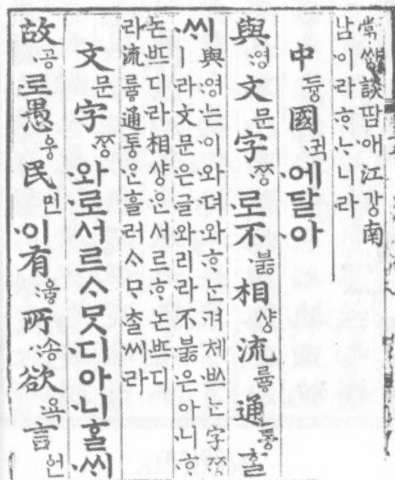 常쌍談땀애江강南
남이라ᄒᆞᄂᆞ니라
中듀ᇰ國귁에달아
與영文문字ᄍᆞᆼ로不부ᇙ相샹流류ᇢ通토ᇰᄒᆞᆯ
ᄊᆡ
與영는이와뎌와ᄒᆞᄂᆞᆫ겨체ᄡᅳ는字ᄍᆞᆼ
ㅣ라文문은글와리라不부ᇙ은아니ᄒᆞ
논ᄠᅳ디라相샤ᇰᄋᆞᆫ서르ᄒᆞ논ᄠᅳ디
라流류ᇢ通토ᇰᄋᆞᆫ흘러ᄉᆞᄆᆞᄎᆞᆯ씨라
文문字ᄍᆞᆼ와로서르ᄉᆞᄆᆞᆺ디아니ᄒᆞᆯᄊᆡ
故공로愚ᅌᅮᆼ民민이有ᅌᅮᇢ所송欲욕言ᅌᅥᆫ